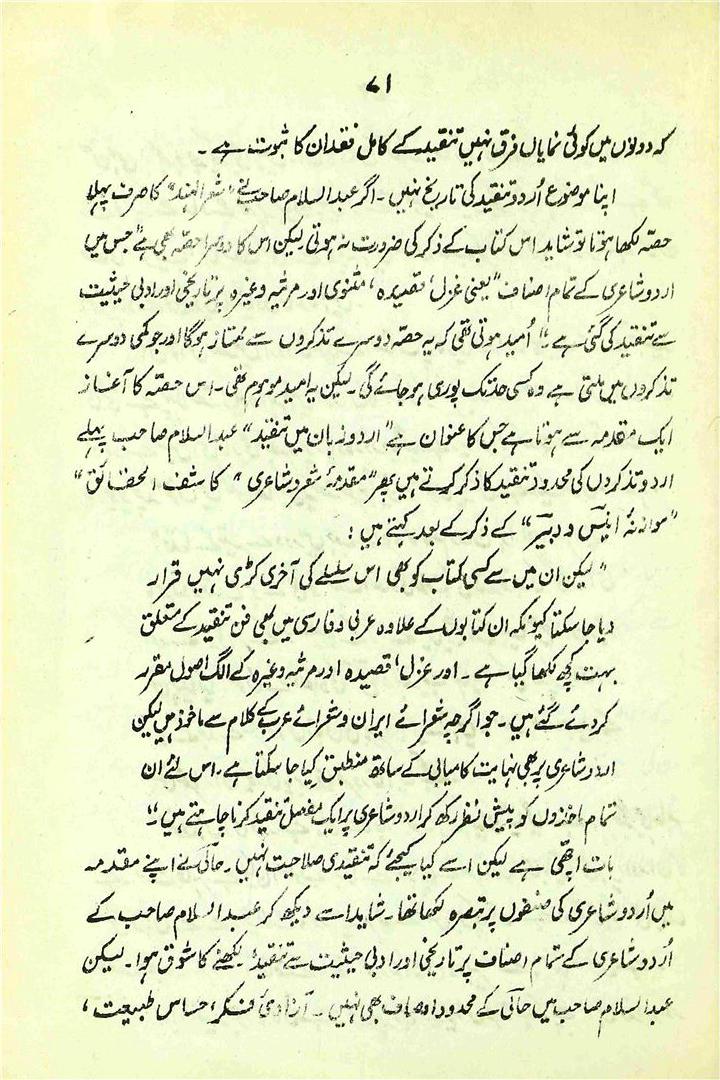 ۷۱
کہ دونوں میں کوئی نمایاں فرق نہیں تنقید کے کامل فقدان کا ثبوت ہے ۔
اپنا موضوع اُردو تنقید کی تاریخ نہیں ۔ اگر عبدالسلام صاحب نے "شعر الہند" کا صرف پہلا
حصّہ لکھا ہوتا تو شاید اس کتاب کے ذکر کی ضرورت نہ ہوتی لیکن اس کا دوسرا حصّہ بھی ہے "جس میں
اردو شاعری کے تمام اصناف "یعنی غزل، قصیدہ، مثنوی اور مرثیہ وغیرہ پر تاریخی اور ادبی حیثیت
سے تنقید کی گئی ہے ۔" اُمید ہوتی تھی کہ یہ حصّہ دوسرے تذکروں سے ممتاز ہوگا اور جو کمی دوسرے
تذکروں میں ملتی ہے وہ کسی حد تک پوری ہو جائے گی ۔ لیکن یہ امید موہوم تھی ۔ اس حصّہ کا آغاز
ایک مقدمہ سے ہوتا ہے جس کا عنوان ہے "اردو زبان میں تنقید" عبدالسلام صاحب پہلے
اردو تذکروں کی محدود تنقید کا ذکر کرتے ہیں پھر "مقدمۂ شعر و شاعری" کاشف الحقائق"
"موازنۂ انیسؔ و دبیرؔ" کے ذکر کے بعد کہتے ہیں :
"لیکن ان میں سے کسی کتاب کو بھی اس سلسلے کی آخری کڑی نہیں قرار
دیا جا سکتا کیونکہ ان کتابوں کے علاوہ عربی و فارسی میں بھی فن تنقید کے متعلق
بہت کچھ لکھا گیا ہے ۔ اور غزل، قصیدہ اور مرثیہ وغیرہ کے الگ اصول مقرر
کر دئے گئے ہیں ۔ جو اگرچہ شعرائے ایران و شعرائے عرب کے کلام سے ماخوذ ہیں لیکن
اردو شاعری پر بھی نہایت کامیابی کے ساتھ منطبق کیا جا سکتا ہے ۔ اس لئے ان
تمام ماخذوں کو پیش نظر رکھ کر اردو شاعری پر ایک مفصل تنقید کرنا چاہتے ہیں ۔"
بات اچھّی ہے لیکن اسے کیا کیجئے کہ تنقیدی صلاحیت نہیں ۔ حالؔی نے اپنے مقدمہ
میں اُردو شاعری کی صنفوں پر تبصرہ لکھا تھا ۔ شاید اسے دیکھ کر عبدالسلام صاحب کے
اُردو شاعری کے تمام اصناف پر تاریخی اور ادبی حیثیت سے تنقید لکھنے کا شوق ہوا ۔ لیکن
عبدالسلام صاحب میں حالؔی کے محدود اوصاف بھی نہیں ۔ آزادئ فکر، حساس طبیعت،